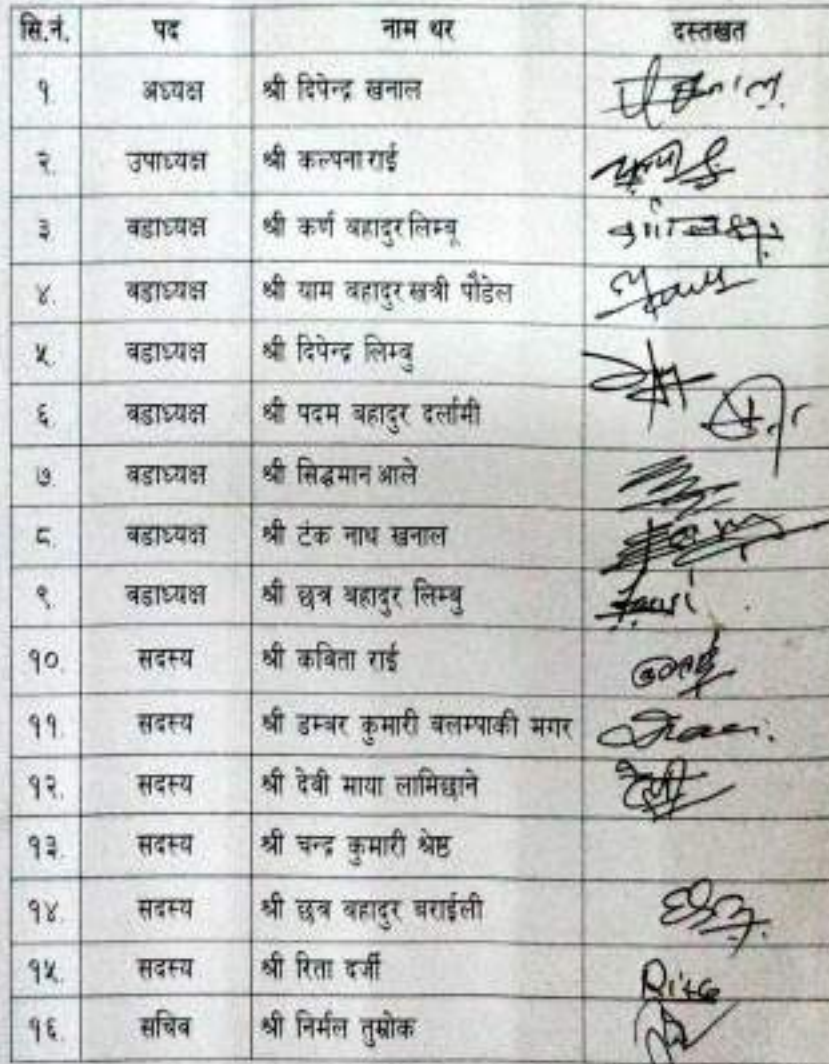 सि.नं. पद नाम थर दस्तखत
१. अध्यक्ष श्री दिपेन्द्र खनाल
२. उपाध्यक्ष श्री कल्पना राई
३ वडाध्यक्ष श्री कर्ण बहादुर लिम्बू
४. वडाध्यक्ष श्री याम बहादुर खत्री पौडेल
५ वडाध्यक्ष श्री दिपेन्द्र लिम्बु
६ वडाध्यक्ष श्री पदम बहादुर दर्लामी
७. वडाध्यक्ष श्री सिद्धमान आले
८. वडाध्यक्ष श्री टंक नाथ खनाल
९ वडाध्यक्ष श्री छत्र बहादुर लिम्बु
१० सदस्य श्री कबिता राई
११. सदस्य श्री डम्बर कुमारी बलम्पाकी मगर
१२. सदस्य श्री देवी माया लामिछाने
१३. सदस्य श्री चन्द्र कुमारी श्रेष्ठ
१४. सदस्य श्री छत्र बहादुर बराईली
१५. सदस्य श्री रिता दर्जी Rita
१६. सचिव श्री निर्मल तुम्रोक